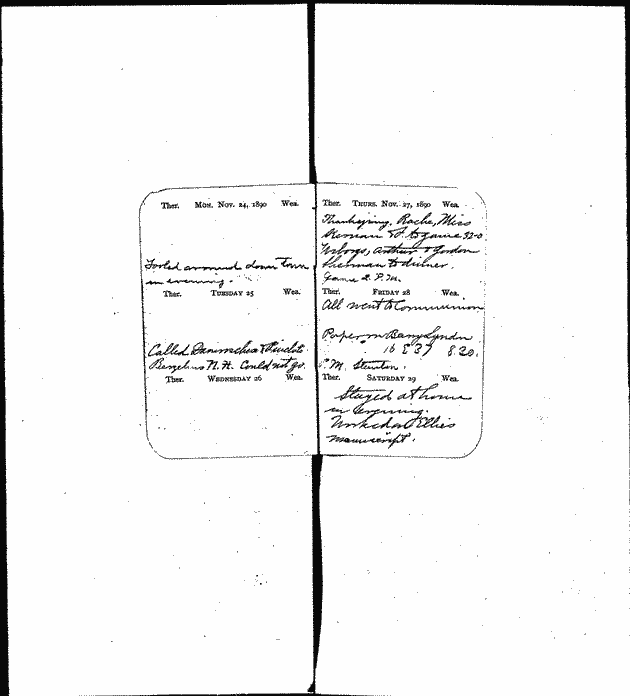 Ther. MON. NOV. 24, 1890 Wea.
Fooled around down town
in evening.
Ther. TUESDAY 25 Wea.
Called
N. H. Could not go.
Ther. WEDNESDAY 26 Wea.
Ther. THURS. NOV. 27, 1890 Wea.
Thanksgiving. Roche, Miss
to game 32-0
Arthur & Gordon
Sherman to dinner.
Game 2 P.M.
Ther. FRIDAY 28 Wea.
All went to Communion
Paper on Barry Lyndon
16 E 37 8.20.
Ther. SATURDAY 29 Wea.
Stayed at home
in evening.
Worked on Ellie's
manuscript.